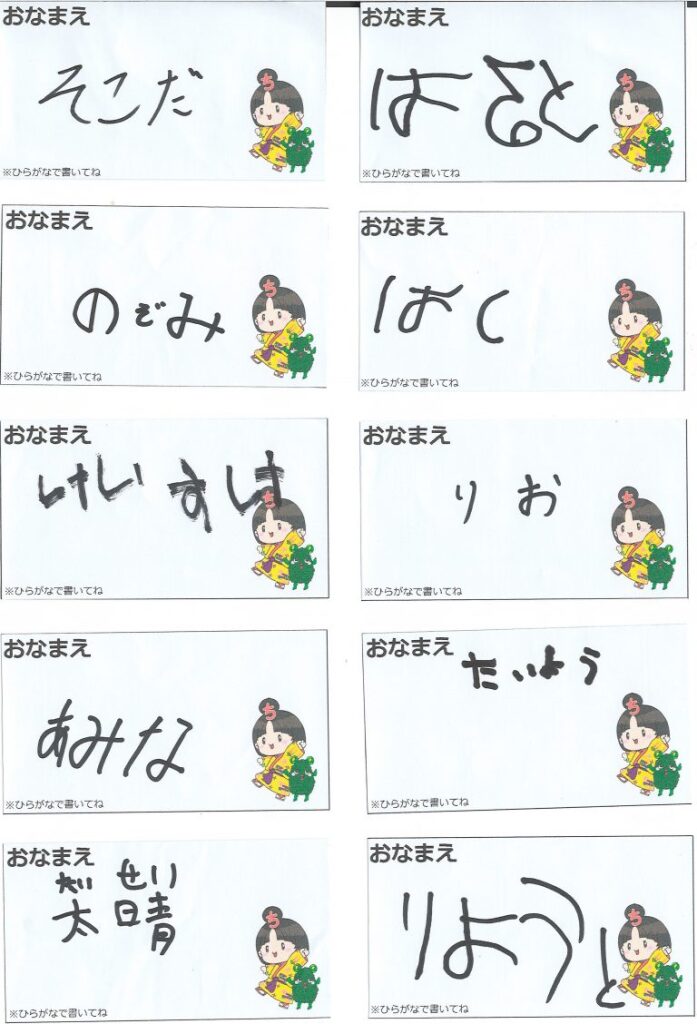 おなまえ
そこだ
ち
※ひらがなで書いてね
おなまえ
はると
ち
※ひらがなで書いてね
おなまえ
のぞみ
ち
※ひらがなで書いてね
おなまえ
はく
ち
※ひらがなで書いてね
おなまえ
けいすけ
ち
※ひらがなで書いてね
おなまえ
りお
ち
※ひらがなで書いてね
おなまえ
あみな
ち
※ひらがなで書いてね
おなまえ
たいよう
ち
※ひらがなで書いてね
おなまえ
たい せい
太 晴
ち
おなまえ
りようと
ち
※ひらがなで書いてね